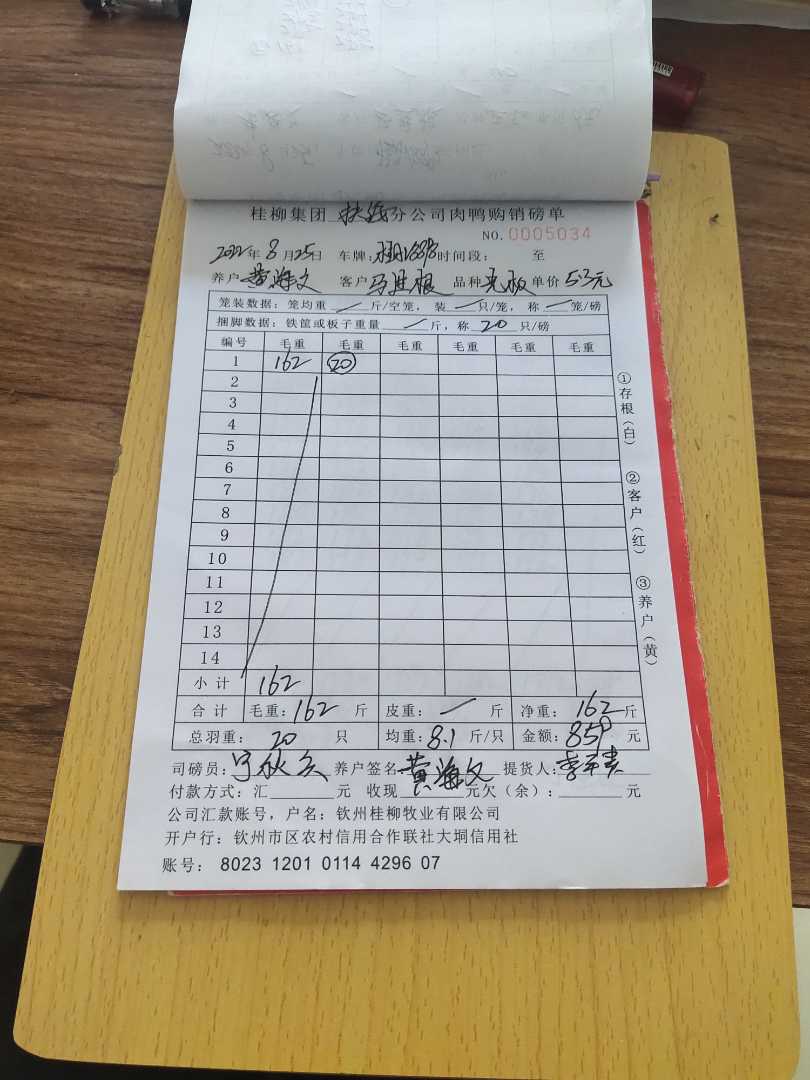 桂柳集团 扶绥 分公司肉鸭购销磅单
NO.0005034
2022年8月25日 车牌: 时间段: 至
养户 黄海文 客户 马胜根 品种 单价 5.3元
笼装数据: 笼均重 / 斤/空笼, 装 / 只/笼, 称 / 笼/磅
捆脚数据: 铁筐或板子重量 / 斤, 称 20 只/磅
编号 毛重 毛重 毛重 毛重 毛重 毛重
1 162 20
2
3
4
5
6
7
8
9
10
11
12
13
14
小计 162
合计 毛重: 162 斤 皮重: / 斤 净重: 162 斤
总羽重: 20 只 均重: 8.1 斤/只 金额: 858 元
司磅员: 养户签名 黄海文 提货人:
付款方式: 汇 元 收现 元欠(余): 元
公司汇款账号, 户名: 钦州桂柳牧业有限公司
开户行: 钦州市区农村信用合作联社大垌信用社
账号: 8023 1201 0114 4296 07
①存根(白)
②客户(红)
③养户(黄)